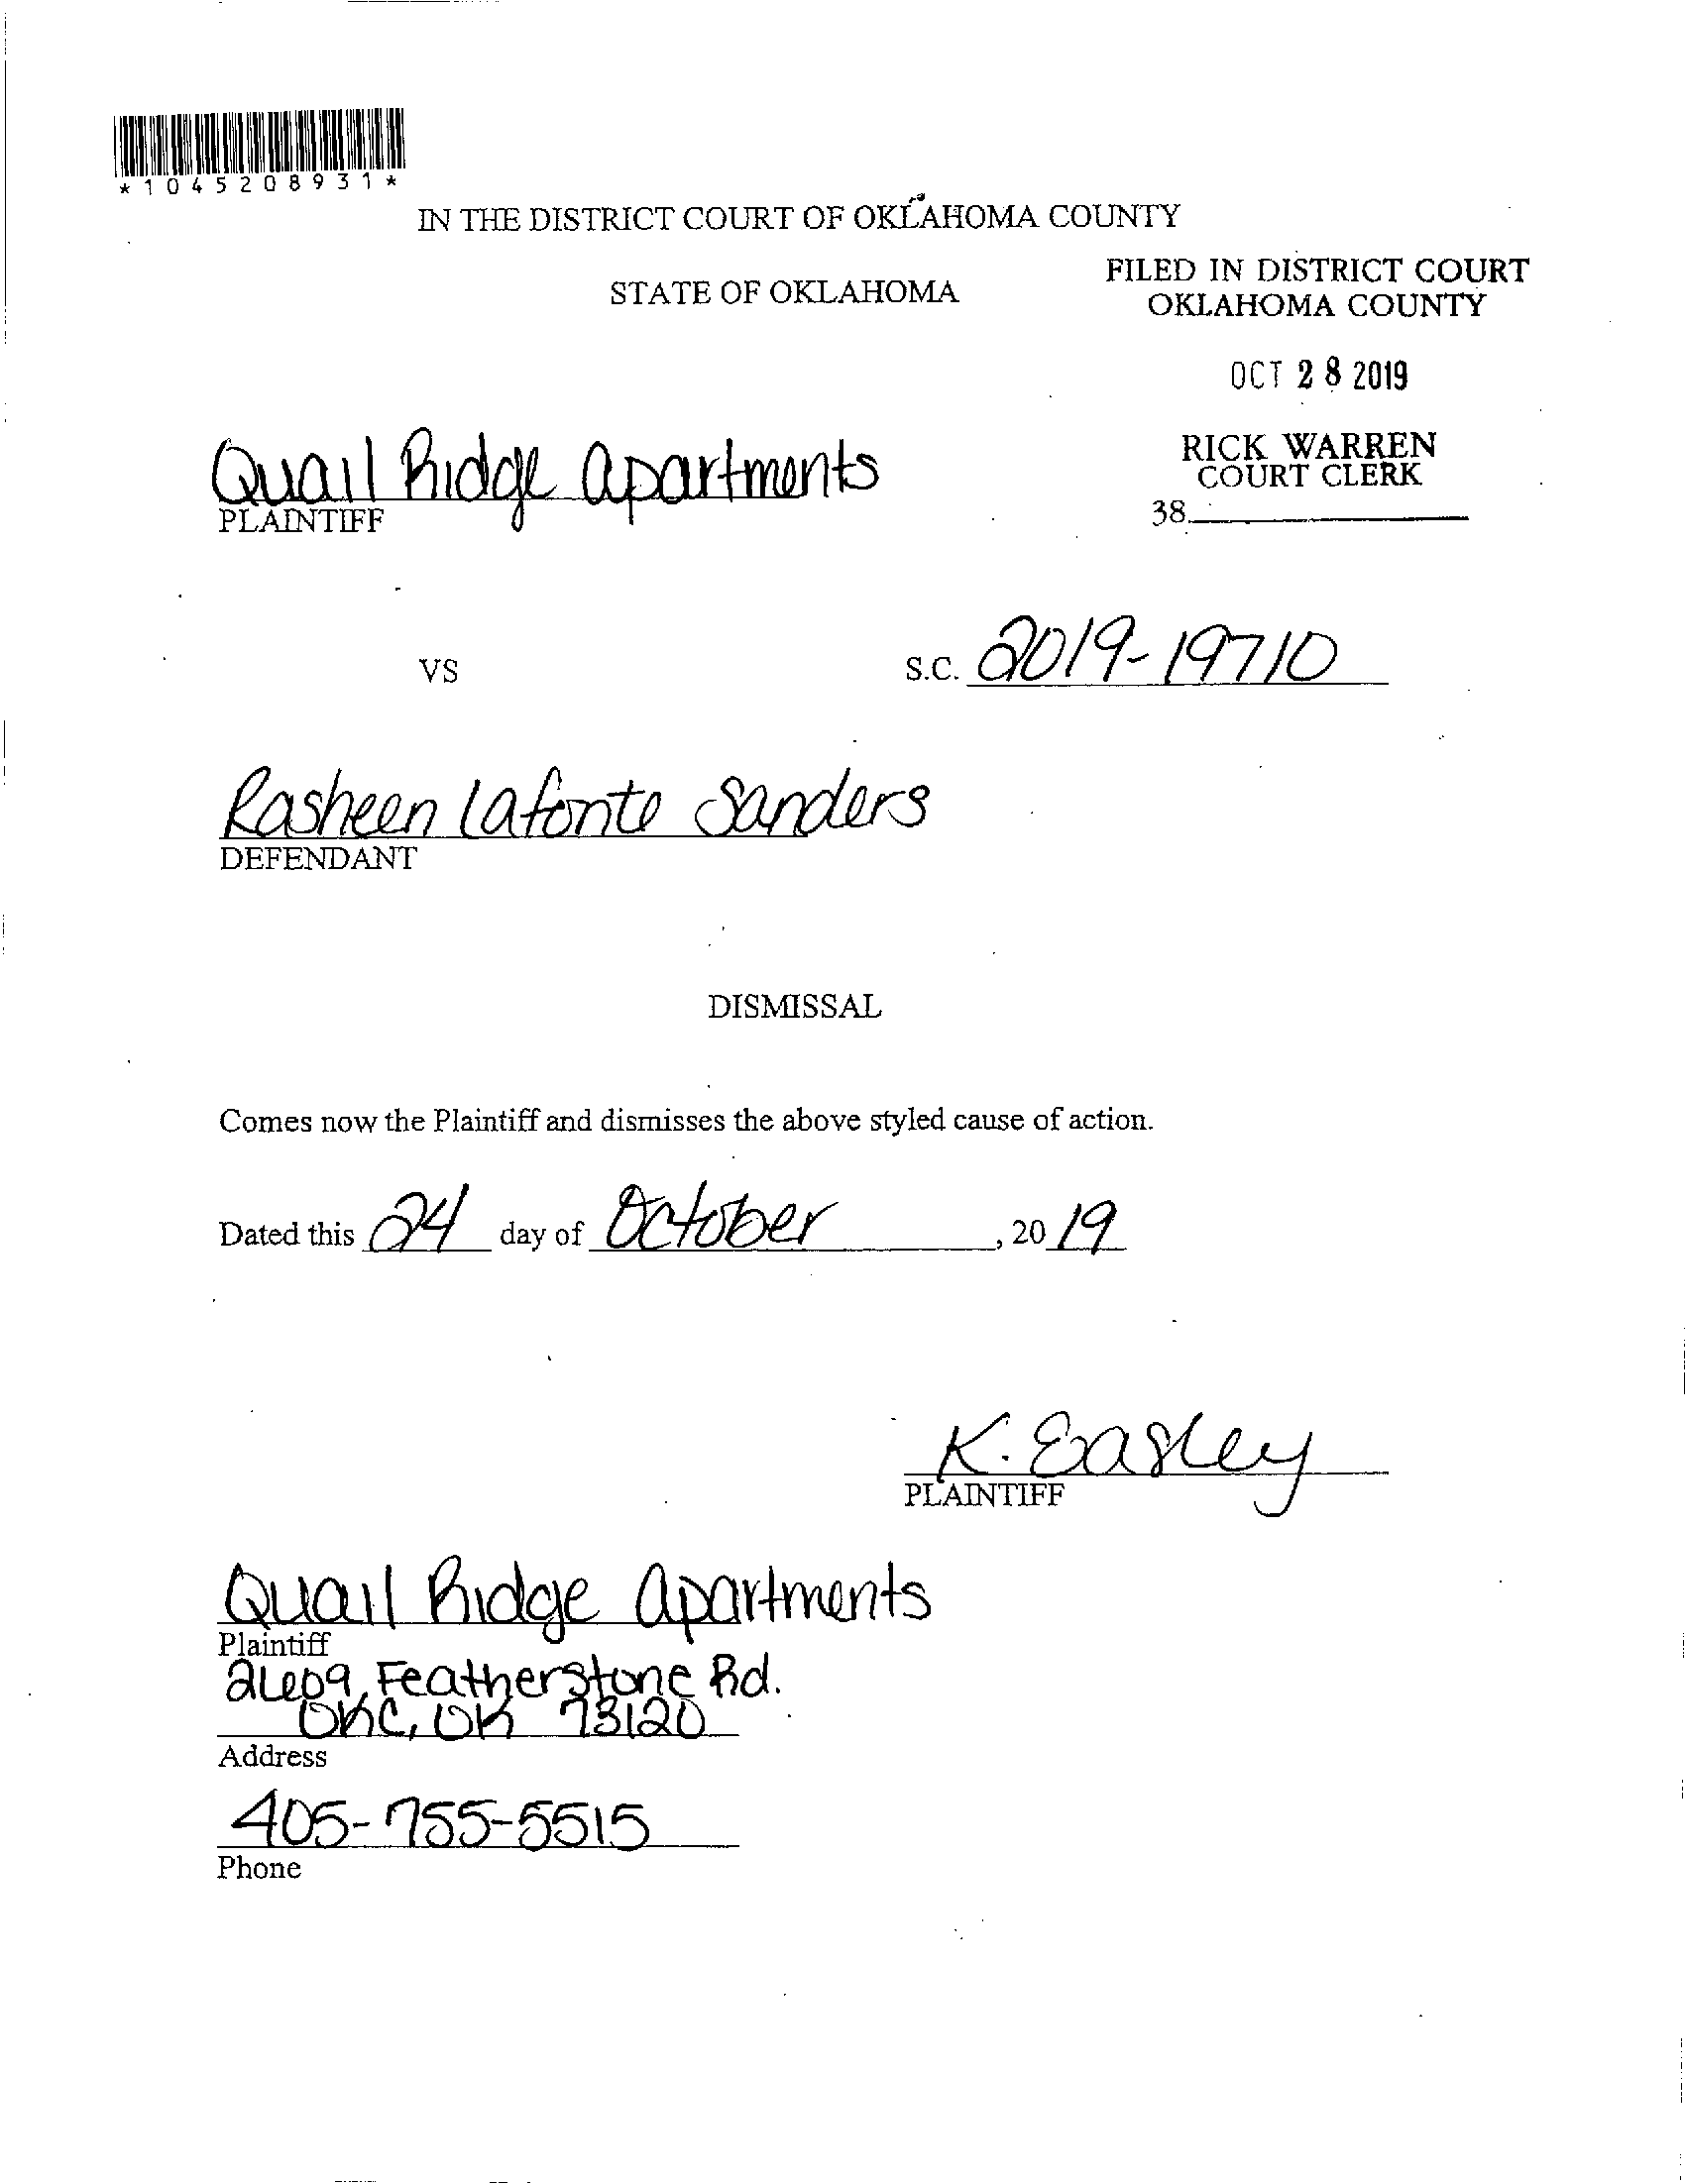 *1045208931*
IN THE DISTRICT COURT OF OKLAHOMA COUNTY
STATE OF OKLAHOMA
FILED IN DISTRICT COURT
OKLAHOMA COUNTY
OCT 28 2019
RICK WARREN
COURT CLERK
38
Quail Ridge Apartments
PLAINTIFF
VS
S.C. 2019-19710
Rasheen Lafonte Sanders
DEFENDANT
DISMISSAL
Comes now the Plaintiff and dismisses the above styled cause of action.
Dated this 24 day of October, 2019
K. Easley
PLAINTIFF
Quail Ridge Apartments
Plaintiff
2609 Featherstone Rd.
OKC, OK 73120
Address
405-755-5515
Phone